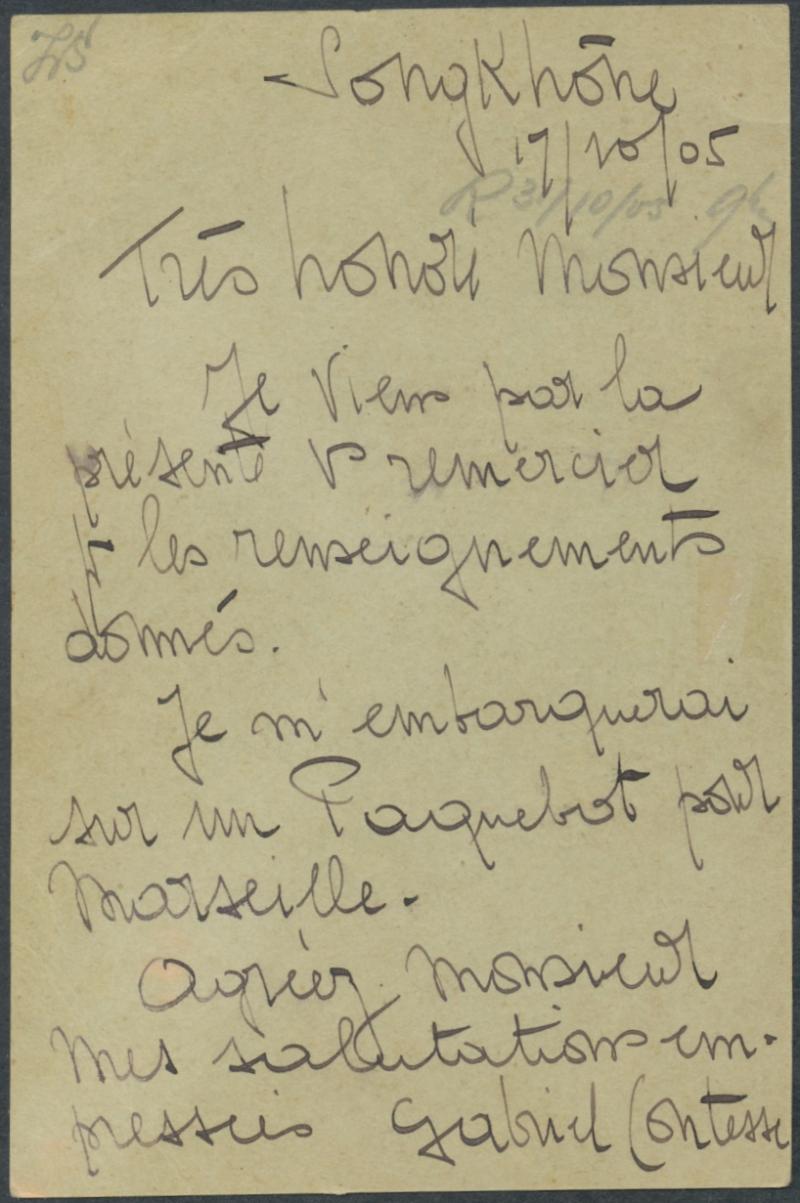 SongKhône
17/10/05
R 31/10/05
Très honoré Monsieur
Je viens par la
présente vs remercier
pr les renseignements
donnés.
Je m'embarquerai
sur un Paquebot pour
Marseille.
Agréez Monsieur
mes salutations em-
pressées Gabriel Contesse